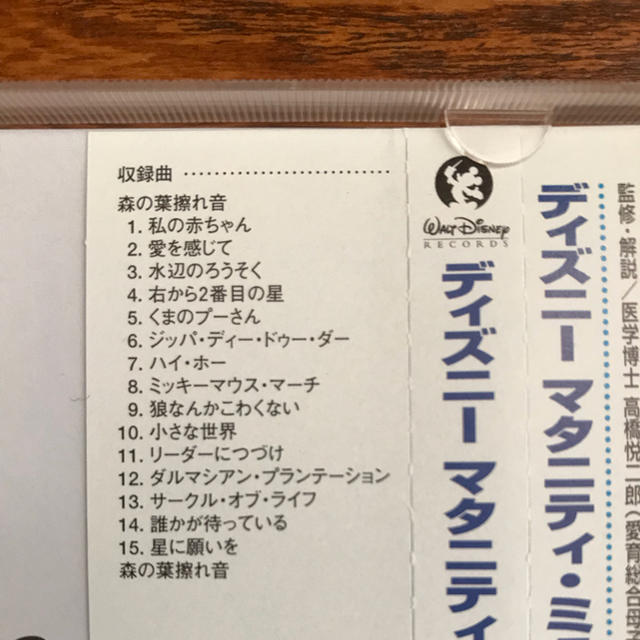 収録曲 ……………………
森の葉擦れ音
1. 私の赤ちゃん
2. 愛を感じて
3. 水辺のろうそく
4. 右から2番目の星
5. くまのプーさん
6. ジッパ・ディー・ドゥー・ダー
7. ハイ・ホー
8. ミッキーマウス・マーチ
9. 狼なんかこわくない
10. 小さな世界
11. リーダーにつづけ
12. ダルマシアン・プランテーション
13. サークル・オブ・ライフ
14. 誰かが待っている
15. 星に願いを
森の葉擦れ音
WALT DISNEY
RECORDS
ディズニー マタニティ
ディズニー マタニティ・ミ
監修・解説/医学博士 高橋悦二郎(愛育総合母子